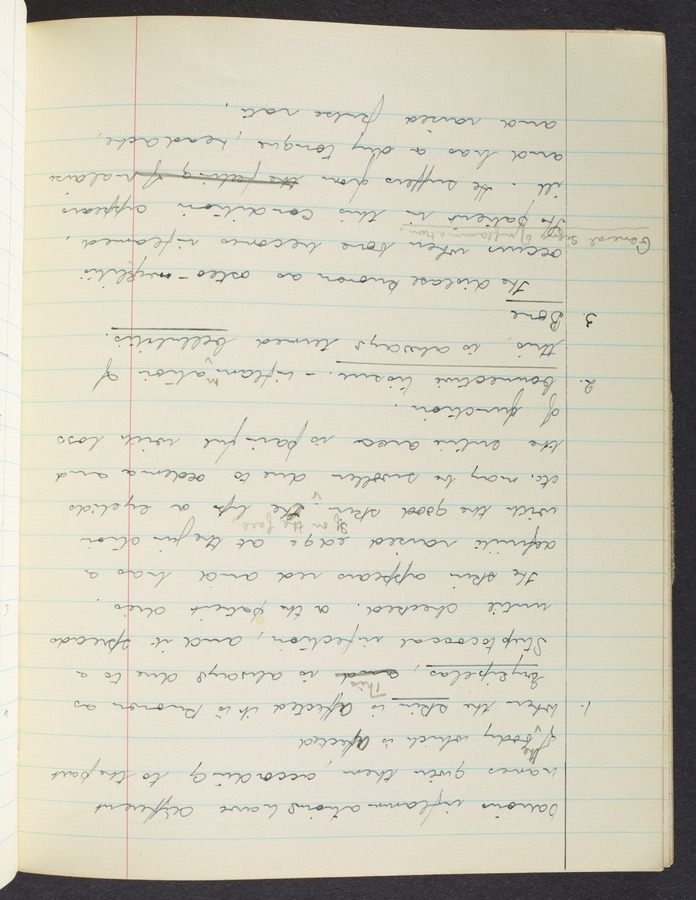 Various inflammations have different
names given them, according to the part
of the body which is affected
1. When the skin is affected it is known as
Erysipelas, and This is always due to a
Streptococcal infection, and it spreads
until checked, or the patient dies.
The skin appears red and has a
definite raised edge at the junction
with the good skin. If on the face, the lips or eyelids
etc. may be swollen due to oedema and
the entire area is painful with loss
of function.
2. Connective tissue. - inflammation of
this, is always termed cellulitis.
3. Bone
The disease known as osteo-myelitis
occurs when bone becomes inflamed.
General signs of inflammation.
The patient in this condition appears
ill. He suffers from the feeling of malaise
and has a dry tongue, headache,
and raised pulse rate.